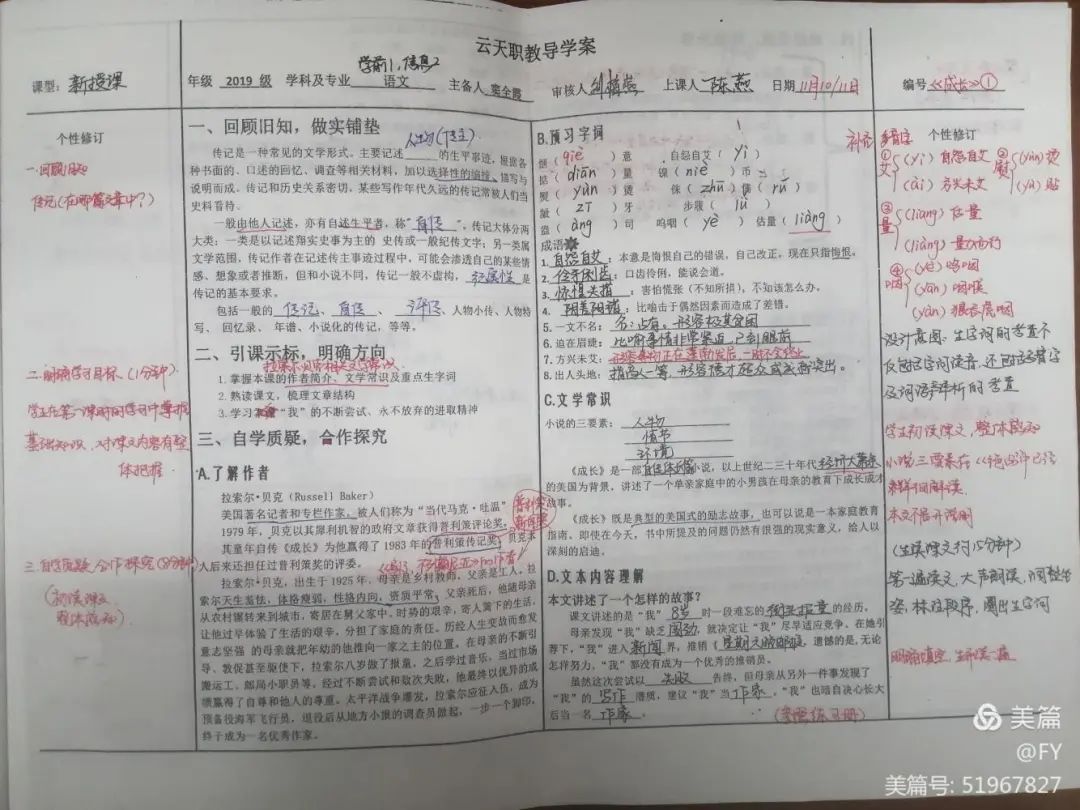 云天职教导学案
课型: 新授课
年级 2019 级 学科及专业 语文 主备人 窦全霞 审核人 上课人 陈燕 日期 11月10/11日
编号《成长》①
个性修订
一.回顾旧知
二.明确学习目标 (1分钟)
学生在第一课时的学习中掌握
基础知识,对课文内容有整
体把握.
三.自学质疑 合作探究(8分钟)
(初读课文
整体感知)
一、回顾旧知，做实铺垫
人物(传主)
传记是一种常见的文学形式。主要记述 的生平事迹，根据各
种书面的、口述的回忆、调查等相关材料，加以选择性的编排、描写与
说明而成。传记和历史关系密切，某些写作年代久远的传记常被人们当
史料看待。
一般由他人记述，亦有自述生平者，称“自传”，传记大体分两
大类：一类是以记述翔实史事为主的 史传或一般纪传文学；另一类属
文学范围，传记作者在记述传主事迹过程中，可能会渗透自己的某些情
感、想象或者推断，但和小说不同，传记一般不虚构，纪实性 是
传记的基本要求。
包括一般的 传记、自传、评传、人物小传、人物特
写、 回忆录、 年谱、小说化的传记，等等。
二、引课示标，明确方向
1. 掌握本课的作者简介、文学常识及重点生字词
2. 熟读课文，梳理文章结构
3. 学习 “我”的不断尝试、永不放弃的进取精神
三、自学质疑，合作探究
A.了解作者
拉索尔·贝克（Russell Baker）
美国著名记者和专栏作家。被人们称为“当代马克·吐温”
1979 年，贝克以其犀利机智的政府文章获得普利策评论奖。
其童年自传《成长》为他赢得了 1983 年的普利策传记奖。贝克本
人后来还担任过普利策奖的评委。
拉索尔·贝克，出生于 1925 年，母亲是乡村教师，父亲是工人。拉
索尔天生羞怯，体格瘦弱，性格内向，资质平常，父亲死后，他随母亲
从农村辗转来到城市，寄居在舅父家中。时势的艰辛，寄人篱下的生活，
让他过早体验了生活的艰辛，分担了家庭的责任。历经人生变故而愈发
意志坚强 的母亲就把年幼的他推向一家之主的位置。在母亲的不断引
导、教促甚至驱使下，拉索尔八岁做了报童，之后学过音乐，当过市场
搬运工、邮局小职员等，经过不断尝试和数次失败，他最终以优异的成
绩赢得了自尊和他人的尊重。太平洋战争爆发，拉索尔应征入伍，成为
预备役海军飞行员，退役后从地方小报的调查员做起，一步一个脚印，
终于成为一名优秀作家。
B.预习字词
惬（qiè）意 自怨自艾（yì）
掂（diān）量 镍（niè）币
熨（yùn）烫 侏（zhū）儒（rú）
龇（zī）牙 步履（lǚ）
盎（àng）司 呜咽（yè） 估量（liàng）
成语
1. 自怨自艾：本意是悔恨自己的错误，自己改正。现在只指悔恨。
2. 伶牙俐齿：口齿伶俐，能说会道。
3. 惊惶失措：害怕慌张（不知所措），不知该怎么办。
4. 阴差阳错：比喻由于偶然因素而造成了差错。
5. 一文不名：名:占有。形容极其贫困
6. 迫在眉睫：比喻事情非常紧迫,已到眼前
7. 方兴未艾：
8. 出人头地：指高人一等,形容德才超众或成就突出。
C.文学常识
小说的三要素： 人物
情节
环境
《成长》是一部自传体长篇小说，以上世纪二三十年代经济大萧条
的美国为背景，讲述了一个单亲家庭中的小男孩在母亲的教育下成长成才
故事。
《成长》既是典型的美国式的励志故事，也可以说是一本家庭教育
指南。即使在今天，书中所提及的问题仍然有很强的现实意义，给人以
深刻的启迪。
D.文本内容理解
本文讲述了一个怎样的故事？
课文讲述的是“我”8岁 时一段难忘的街头报童的经历。
母亲发现“我”缺乏闯劲，就决定让“我”尽早适应竞争。在她引
荐下，“我”进入新闻界，推销《星期六晚邮报》，遗憾的是，无论
怎样努力，“我”都没有成为一个优秀的推销员。
虽然这次尝试以 失败 告终，但母亲从另外一件事发现了
“我”的写作潜质，建议“我”当作家，“我”也暗自决心长大
后当一名作家。
补充 多音字 个性修订
①艾 (yì) 自怨自艾
(ài) 方兴未艾
②熨 (yùn) 烫
(yù) 贴
③量 (liáng) 估量
(liàng) 量力而行
④咽 (yè) 呜咽
(yān) 咽喉
(yàn) 狼吞虎咽
设计意图:生字词的考查不
学生初读课文,整体感知
本文不展开说明
(生读课文约15分钟)
第一遍读文,大声朗读,调整坐
姿,标注段序,圈出生字词
美篇
@FY
美篇号: 51967827